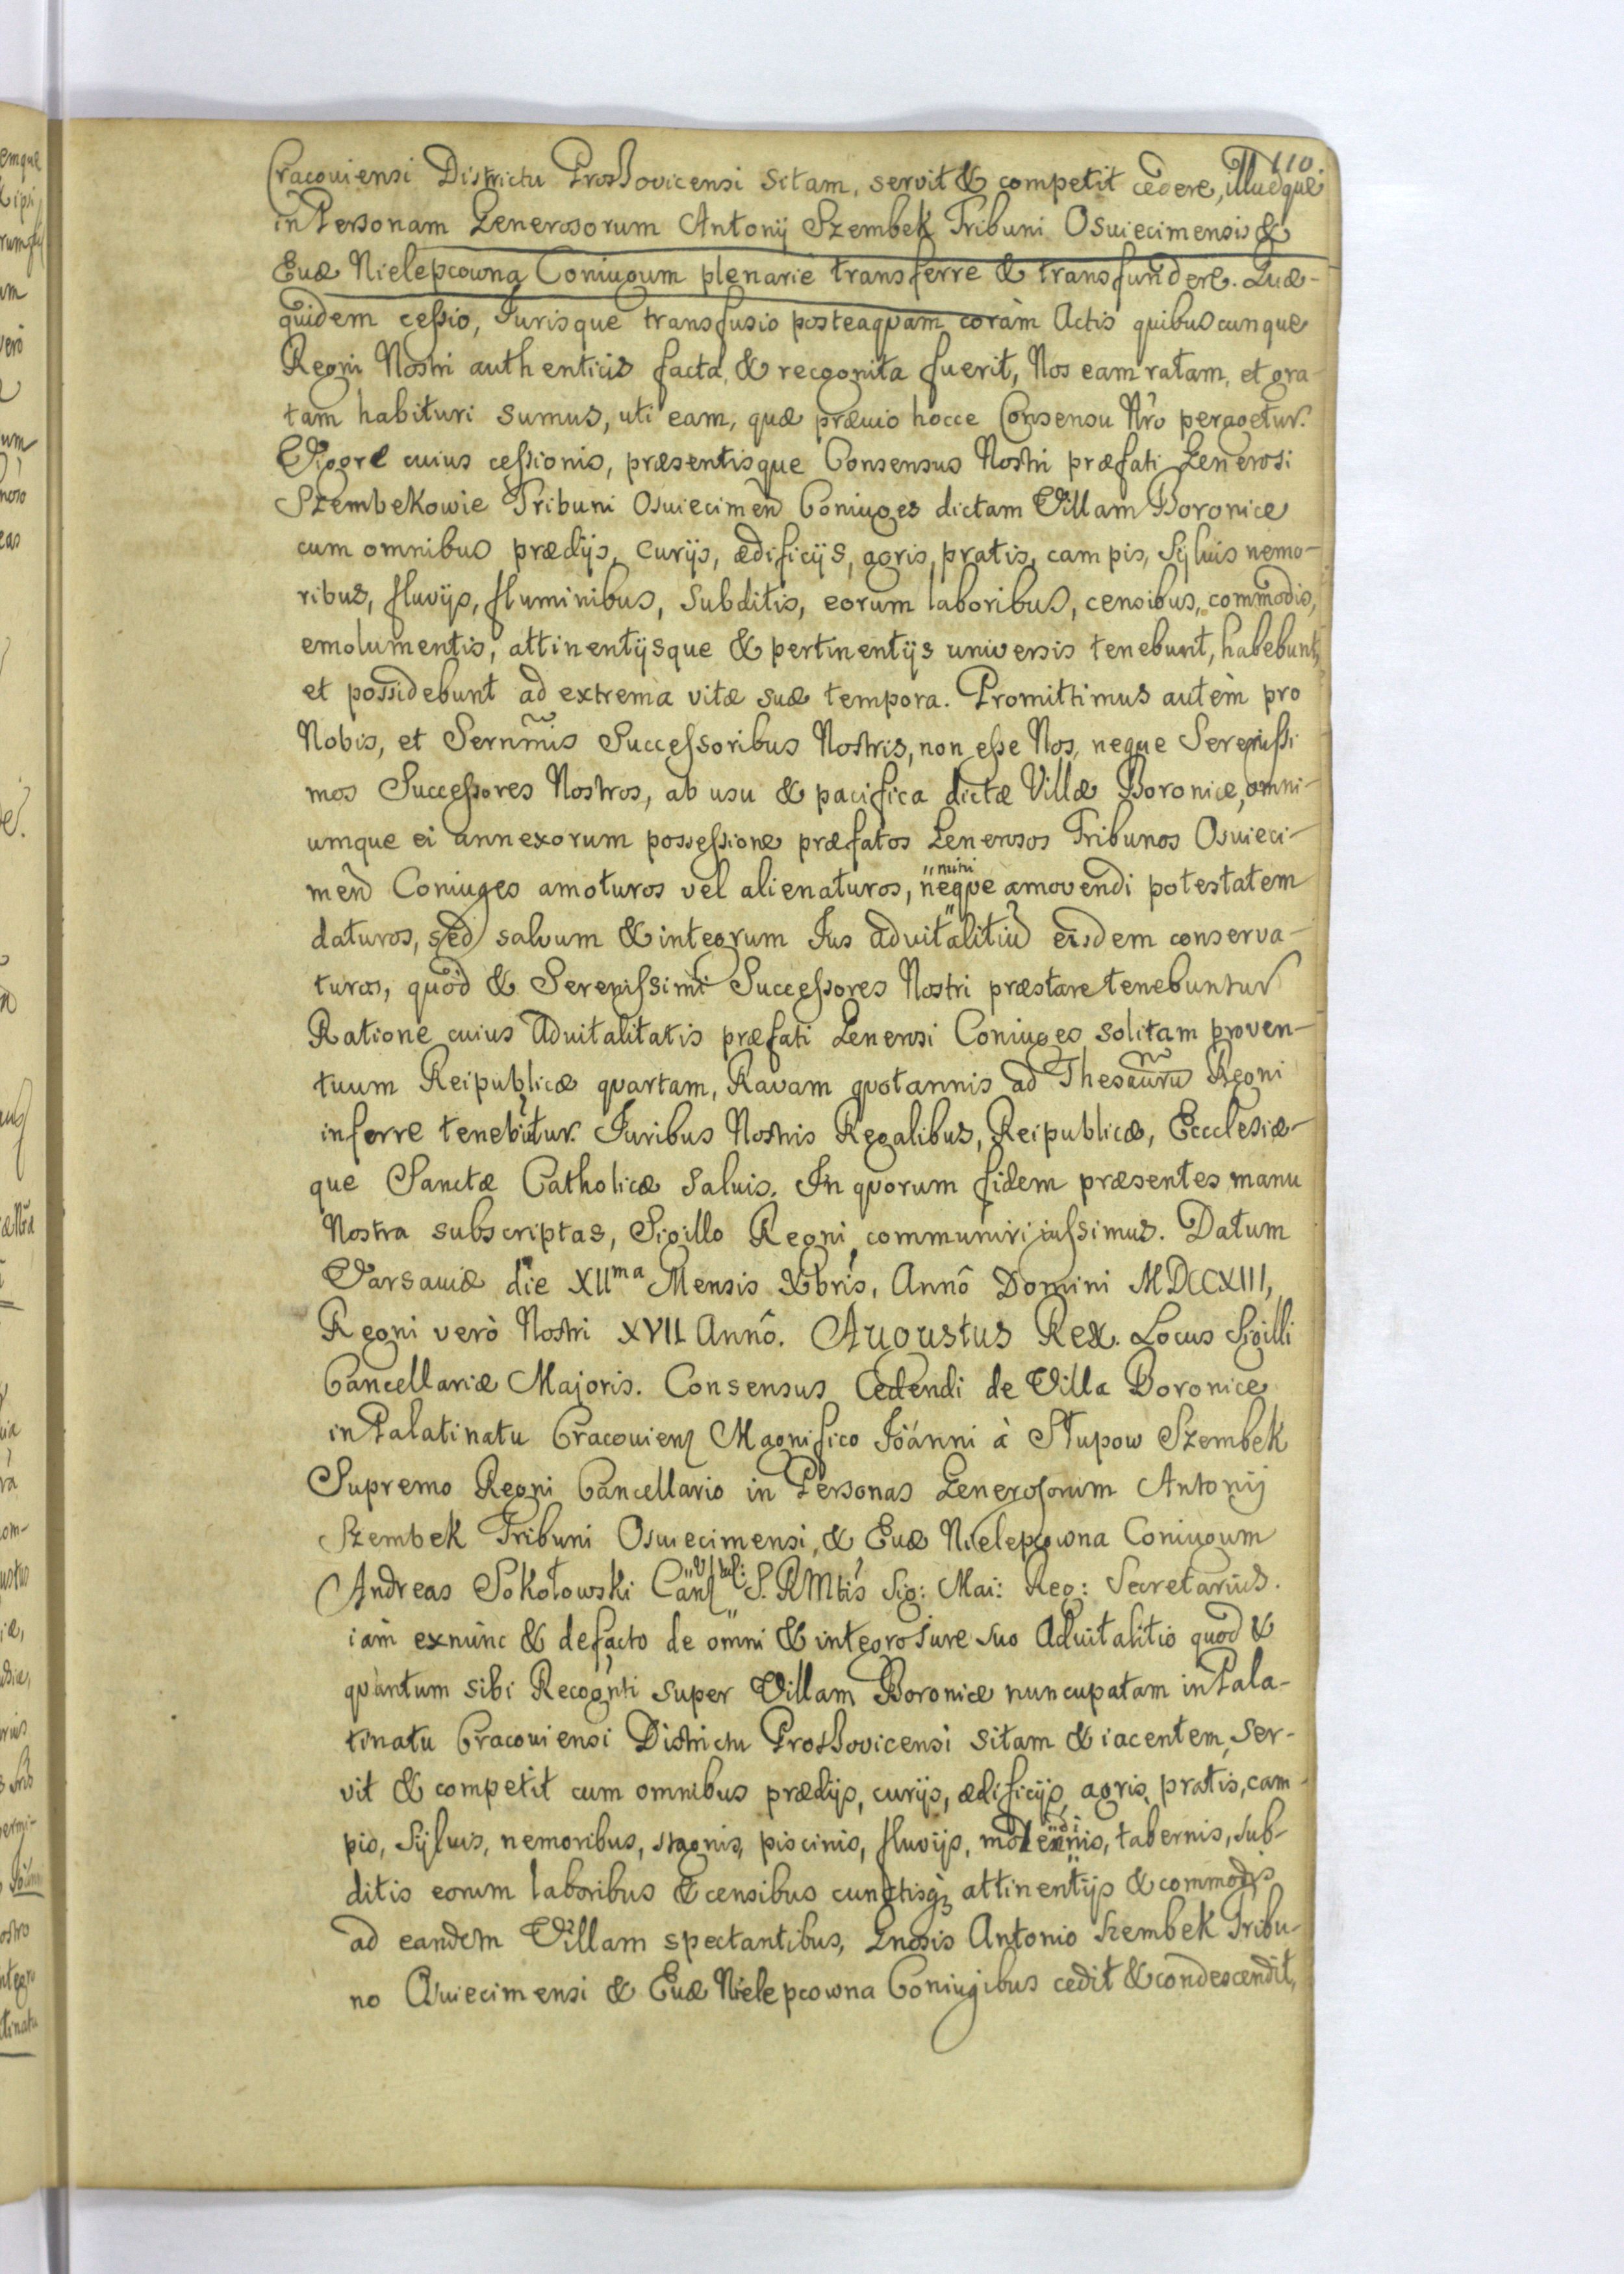 110.
Cracouiensi Districtu Proszovicensi sitam, servit & competit cedere, illudque
in Personam Generosorum Antonij Szembek Tribuni Osuiecimensis &
Euæ Nielepcowna Coniugum plenarie transferre & transfundere. Quæ-
quidem cessio, Jurisque transfusio posteaquam coràm Actis quibuscunque
Regni Nostri authenticis facta, & recognita fuerit, Nos eam ratam, et gra-
tam habituri sumus, uti eam, quæ præuio hocce Consensu Nrô peragetur.
Vigore cuius cessionis, præsentisque Consensus Nostri præfati Generosi
Szembekowie Tribuni Osuiecimen Coniuges dictam Villam Boronice
cum omnibus prædijs, Curijs, ædificijs, agris, pratis, campis, Syluis nemo-
ribus, fluvijs, fluminibus, Subditis, eorum laboribus, censibus, commodis,
emolumentis, attinentijsque & pertinentijs universis tenebunt, habebunt,
et possidebunt ad extrema vitæ suæ tempora. Promittimus autèm pro
Nobis, et Sernmis Successoribus Nostris, non esse Nos, neque Serenissi-
mos Successores Nostros, ab usu & pacifica dictæ Villæ Boronice, omni-
umque ei annexorum possessione præfatos Generosos Tribunos Osuieci-
men Coniuges amoturos vel alienaturos, neqve nini amovendi potestatem
daturos, sed salvum & integrum Jus aduitalitiu eisdem conserva-
turos, quod & Serenissimi Successores Nostri præstare tenebuntur
Ratione cuius Aduitalitatis præfati Generosi Coniuges solitam proven-
tuum Reipublicæ qvartam, Ravam qvotannis ad Thesauru Regni
inferre tenebutur. Juribus Nostris Regalibus, Reipublicæ, Ecclesiæ-
que Sanctæ Catholicæ Saluis. In qvorum fidem præsentes manu
Nostra subscriptas, Sigillo Regni communiri iussimus. Datum
Varsauiæ die XIIma Mensis Xbris, Annô Domini MDCCXIII,
Regni verò Nostri XVII Annô. Augustus Rex. Locus Sigilli
Cancellariæ Majoris. Consensus Cedendi de Villa Boronice
in Palatinatu Cracouien Magnifico Joánni à Słupow Szembek
Supremo Regni Cancellario in Personas Generosorum Antonij
Szembek Tribuni Osuiecimensi, & Euæ Nielepcowna Coniugum
Andreas Sokołowski S. RMtis Sig: Mai: Reg: Secretarius.
iàm exnùnc & defacto de omni & integro Jure suo Aduitalitio quod &
qvàntum sibi Recognti super Villam Boronice nuncupatam in Pala-
tinatu Cracouiensi Districtu Proszovicensi sitam & iacentem, ser-
vit & competit cum omnibus prædijs, curijs, ædificijs, agris, pratis, cam-
pis, Syluis, nemoribus, stagnis, piscinis, fluvijs, tabernis, sub-
ditis eorum laboribus & censibus cunctisq; attinentijs & commodis
ad eandem Villam spectantibus, Gnosis Antonio Szembek Tribu-
no Osuiecimensi & Euæ Nielepcowna Coniugibus cedit & condescendit,